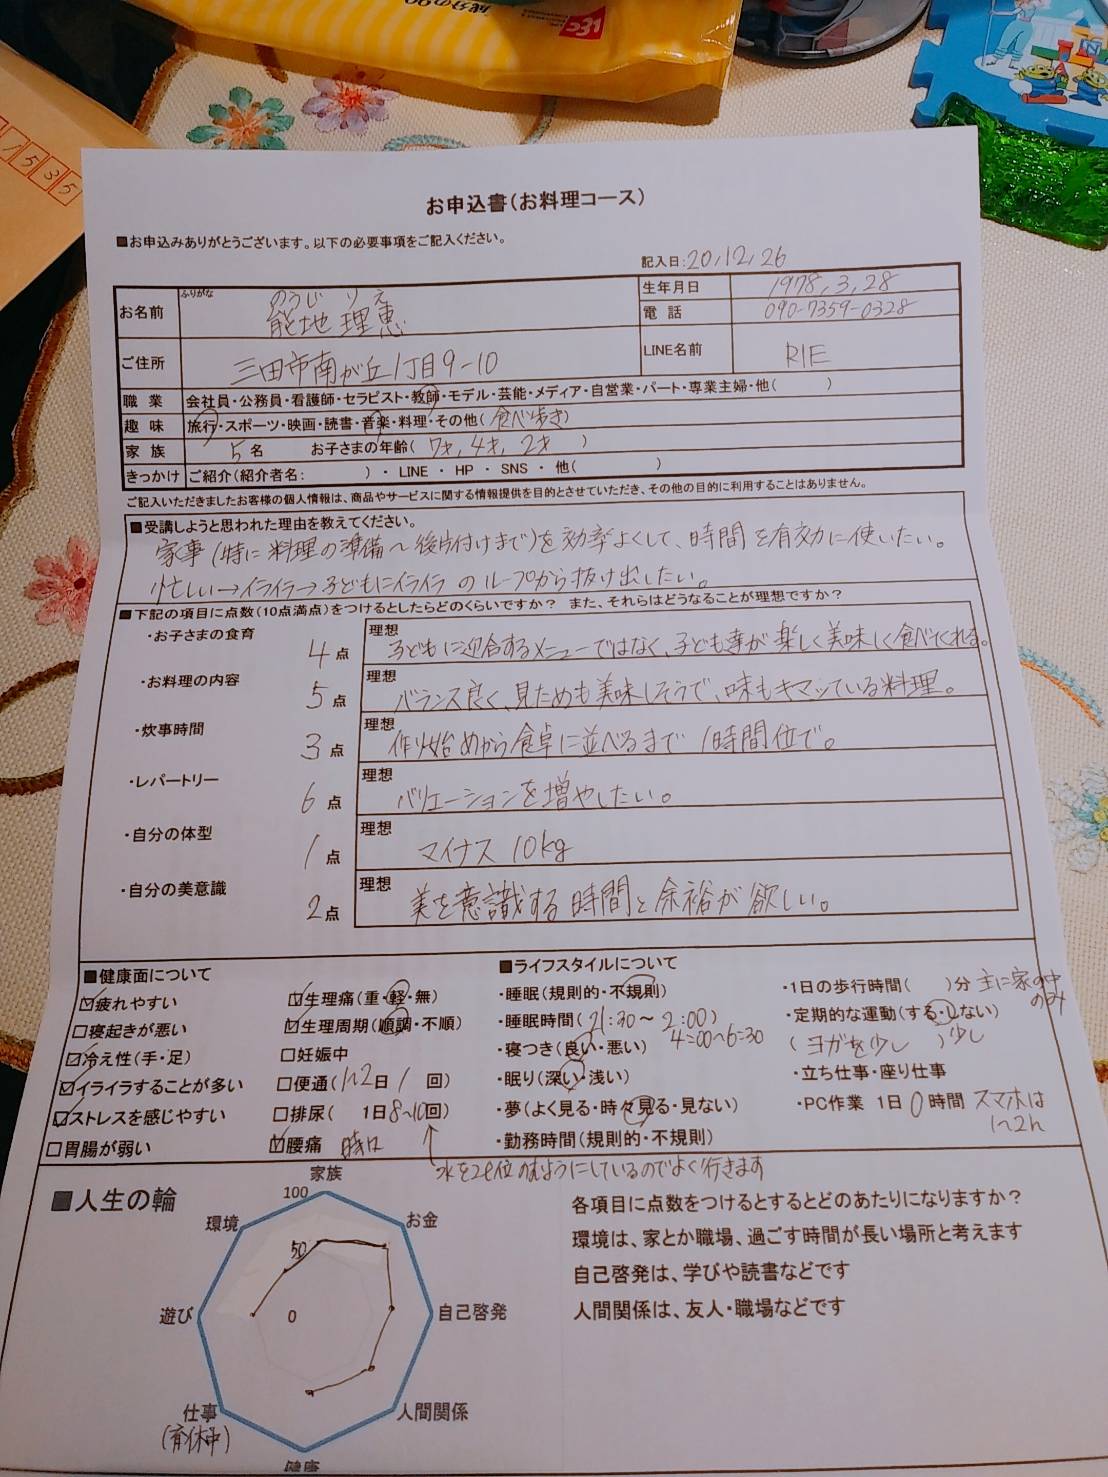 成分の90
1535
お申込書(お料理コース)
■お申込みありがとうございます。以下の必要事項をご記入ください。
記入日:20,12,26
お名前 ふりがな のうじ りえ 能地 理恵
生年月日 1978,3,28
電 話 090-7359-0328
ご住所 三田市南が丘1丁目9-10
LINE名前 RIE
職 業 会社員・公務員・看護師・セラピスト・教師・モデル・芸能・メディア・自営業・パート・専業主婦・他( )
趣 味 旅行・スポーツ・映画・読書・音楽・料理・その他(食べ歩き)
家 族 5名 お子さまの年齢( 7才,4才,2才 )
きっかけ ご紹介(紹介者名: )・ LINE ・ HP ・ SNS ・ 他( )
ご記入いただきましたお客様の個人情報は、商品やサービスに関する情報提供を目的とさせていただき、その他の目的に利用することはありません。
■受講しようと思われた理由を教えてください。
家事(特に料理の準備~後片付けまで)を効率よくして、時間を有効に使いたい。
忙しい→イライラ→子どもにイライラ のループから抜け出したい。
■下記の項目に点数(10点満点)をつけるとしたらどのくらいですか? また、それらはどうなることが理想ですか?
・お子さまの食育 4点 理想 子どもに迎合するメニューではなく、子ども達が楽しく美味しく食べてくれる。
・お料理の内容 5点 理想 バランス良く、見ためも美味しそうで、味もキマッている料理。
・炊事時間 3点 理想 作り始めから食卓に並べるまで 1時間位で。
・レパートリー 6点 理想 バリエーションを増やしたい。
・自分の体型 1点 理想 マイナス 10kg
・自分の美意識 2点 理想 美を意識する時間と余裕が欲しい。
■健康面について
☑疲れやすい
□寝起きが悪い
☑冷え性(手・足)
☑イライラすることが多い
☑ストレスを感じやすい
□胃腸が弱い
☑生理痛(重・軽・無)
☑生理周期(順調・不順)
□妊娠中
□便通(1~2日 1 回)
□排尿( 1日8~10回)
☑腰痛 時に
↑水を2ℓ位のむようにしているのでよく行きます
■ライフスタイルについて
・睡眠(規則的・不規則)
・睡眠時間(21:30~2:00)
4:00~6:30
・寝つき(良い・悪い)
・眠り(深い・浅い)
・夢(よく見る・時々見る・見ない)
・勤務時間(規則的・不規則)
・1日の歩行時間( )分 主に家の中のみ
・定期的な運動(する・しない)
(ヨガを少し ) 少し
・立ち仕事・座り仕事
・PC作業 1日 0 時間 スマホは
1~2h
■人生の輪
家族
100
お金
自己啓発
人間関係
健康
仕事
(育休中)
遊び
環境
50
0
各項目に点数をつけるとするとどのあたりになりますか?
環境は、家とか職場、過ごす時間が長い場所と考えます
自己啓発は、学びや読書などです
人間関係は、友人・職場などです